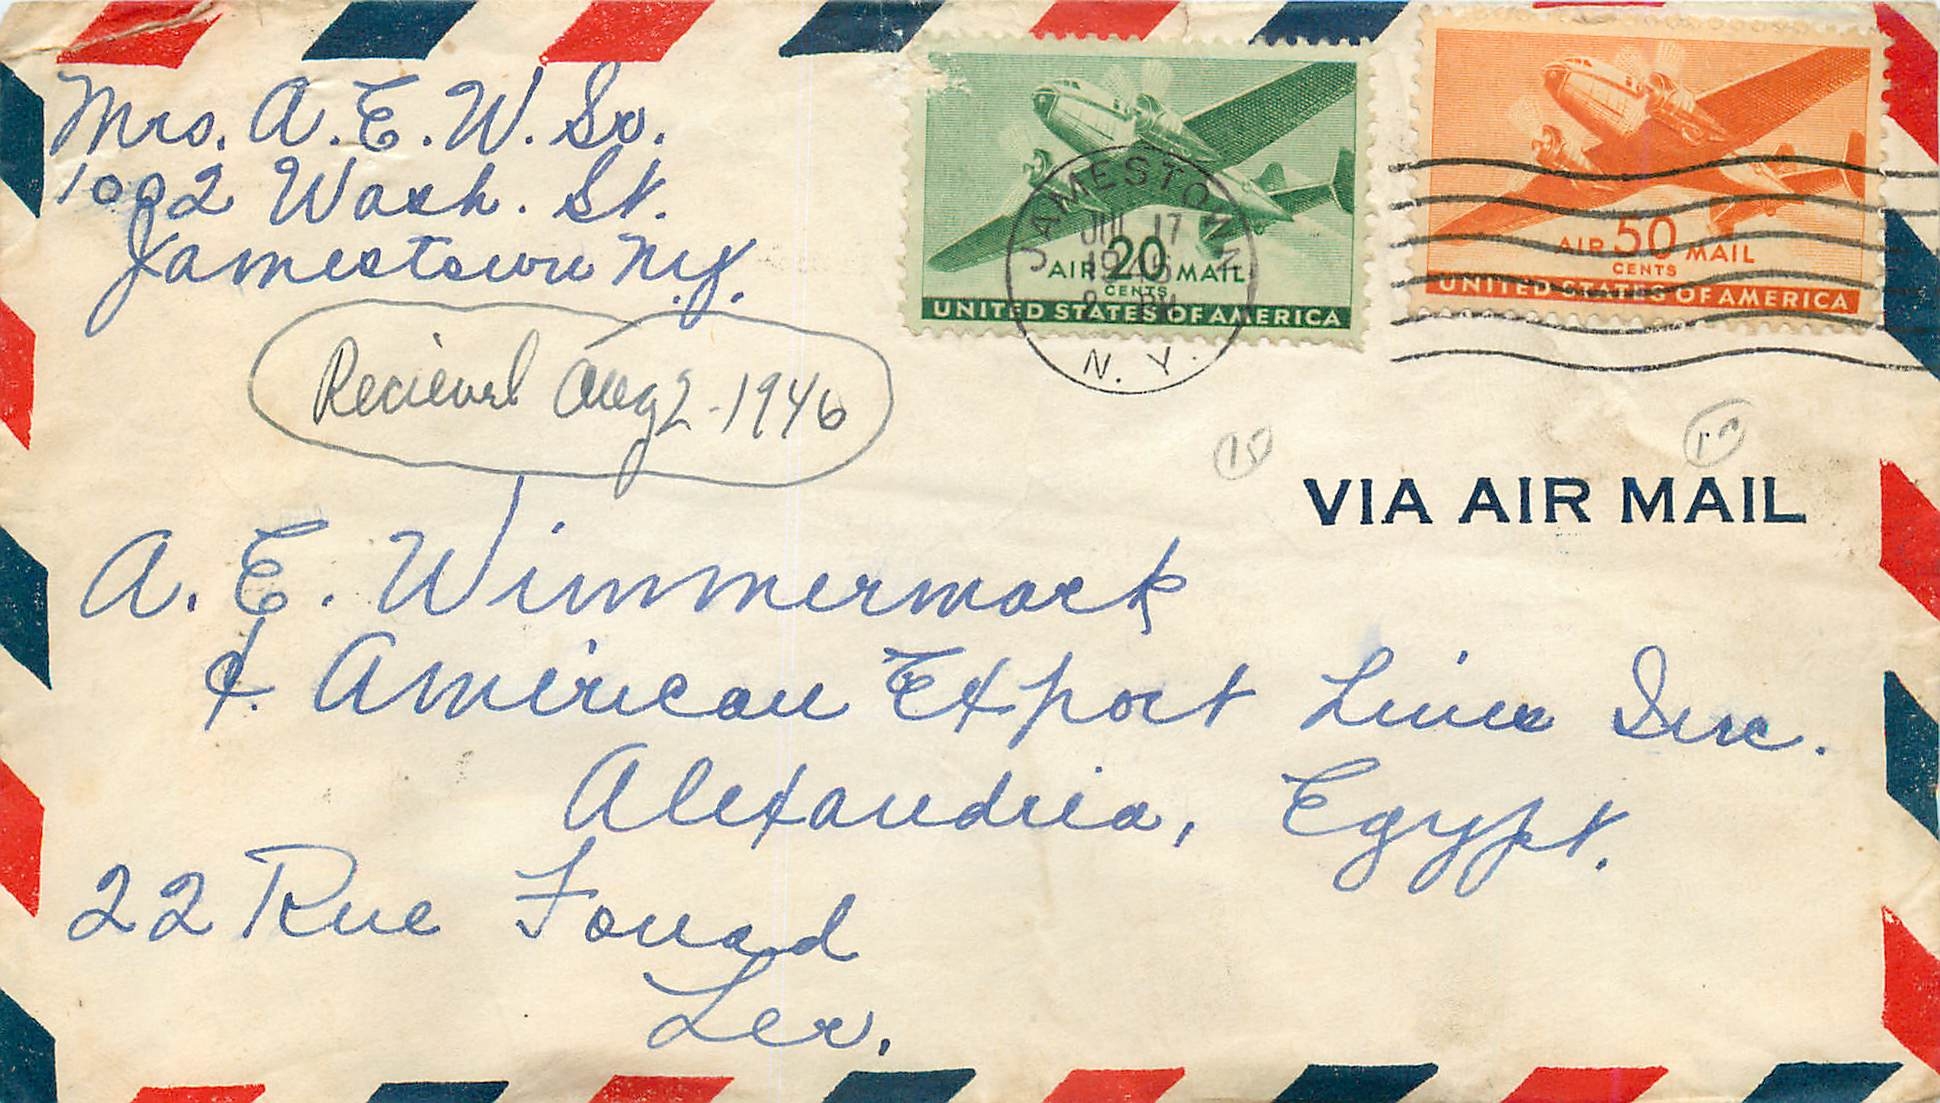 Mrs. A. E. W. Sr.
1002 Wash. St.
Jamestown N.y.
Recieved Aug 2-1946
JAMESTOWN
JUL 17
1946
N. Y.
AIR 20 MAIL
CENTS
UNITED STATES OF AMERICA
AIR 50 MAIL
CENTS
UNITED STATES OF AMERICA
15
VIA AIR MAIL
A. E. Wimmermark
American Export Lines Inc.
Alexandria, Egypt.
22 Rue Fouad